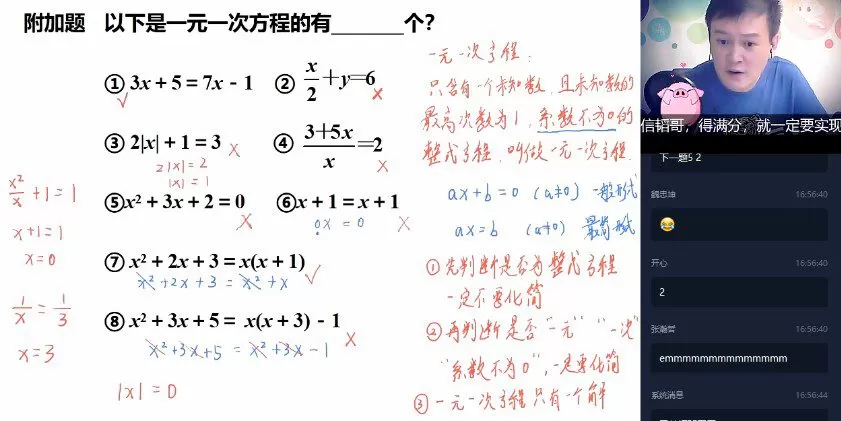 附加题 以下是一元一次方程的有_______个?
① 3x + 5 = 7x - 1 ② x/2 + y = 6
③ 2|x| + 1 = 3 ④ (3+5x)/x = 2
2|x| = 2
|x| = 1
⑤ x² + 3x + 2 = 0 ⑥ x + 1 = x + 1
0x = 0
⑦ x² + 2x + 3 = x(x + 1)
x² + 2x + 3 = x² + x
⑧ x² + 3x + 5 = x(x + 3) - 1
x² + 3x + 5 = x² + 3x - 1
x²/x + 1 = 1
x + 1 = 1
x = 0
1/x = 1/3
x = 3
|x| = 0
一元一次方程:
只含有一个未知数,且未知数的
最高次数为1,系数不为0的
整式方程,叫做一元一次方程.
ax + b = 0 (a≠0) 一般形式
ax = b (a≠0) 最简形式
① 先判断是否为整式方程
一定不要化简
② 再判断是否"一元" "一次"
"系数不为0",一定要化简
③ 一元一次方程只有一个解
信韬哥,得满分,就一定要实现
下一题5 2
16:56:40
😂
开心 16:56:40
2
16:56:40
emmmmmmmmmmmmmm
系统消息 16:56:44